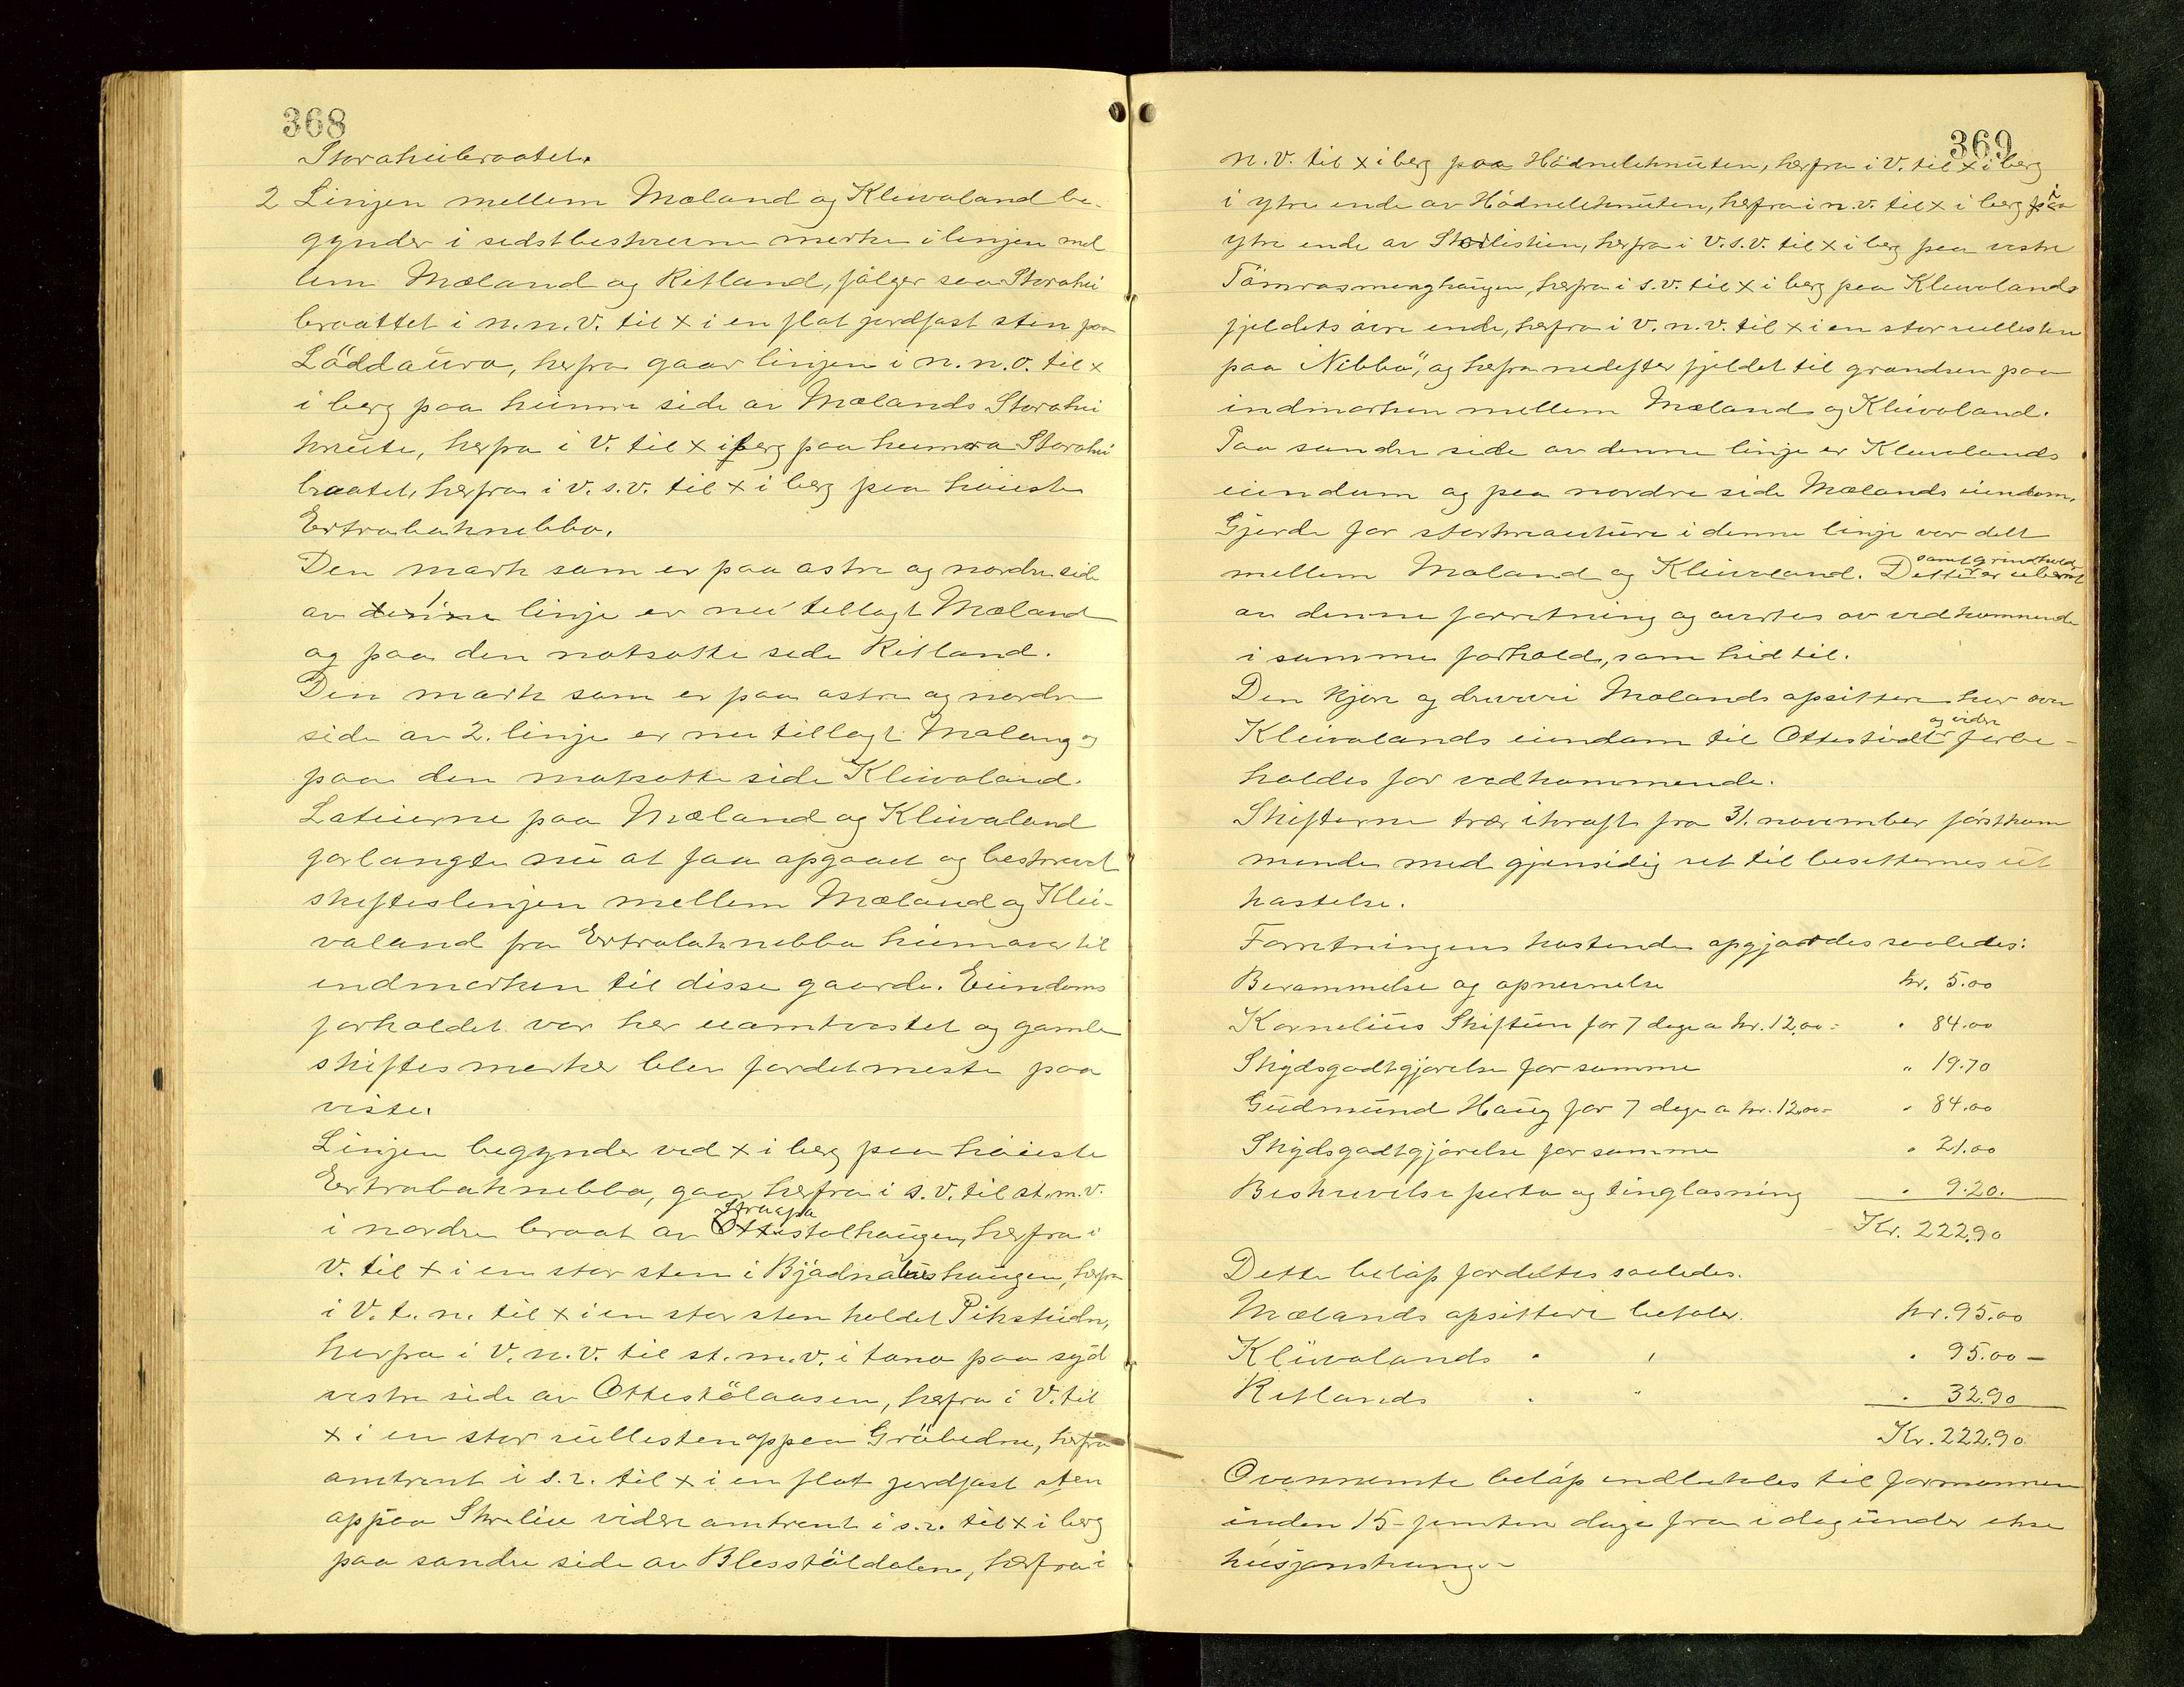 368
Storaheibraatet.
2 Linjen mellem Mæland og Kleivaland be-
gynder i sidstbeskrevne merke i linjen mel
lem Mæland og Ritland, følger saa Storahei
braattet i n.n.v. til x i en flat jordfast sten paa
Løddaura, herfra gaar linjen i n.n.o. til x
i berg paa heimre side av Mælands Storahei
knute, herfra i v. til x i berg paa heimra Storahei
braatet, herfra i v.s.v. til x i berg paa høieste
Ertrabaknebba.
Den mark som er paa østre og nordre side
av 1. linje er nu tillagt Mæland
og paa den motsatte side Ritland.
Den mark som er paa østre og nordre
side av 2. linje er nu tillagt Mæland og
paa den motsatte side Kleivaland.
Lateierne paa Mæland og Kleivaland
forlangte nu at faa opgaaet og beskrevet
skifteslinjen mellem Mæland og Klei-
valand fra Ertrabaknebba heimover til
indmarken til disse gaarde. Eiendoms
forholdet var her uomtvistet og gamle
skiftesmerker blev fordetmeste paa
vist.
Linjen begynder ved x i berg paa høieste
Ertrabaknebba, gaar herfra i s.v. til st.m.v.
i nordre braat av Straapastølhaugen, herfra i
v. til x i en stor sten i Bjødnabaashaugen, herfra
i v.t.n. til x i en stor sten kaldet Piksteidn,
herfra i v.n.v. til st.m.v. i tona paa syd
vestre side av Ottestølaasen, herfra i v. til
x i en stor rullesten oppaa Gråheidne, herfra
omtrent i s.v. til x i en flat jordfast sten
oppaa Skrelie videre omtrent i s.v. til x i berg
paa søndre side av Blesstøldalene, herfra i
369
n.v. til x i berg paa Hødneleknuten, herfra i v. til x i berg
i ytre ende av Hødneleknuten, herfra i n.v. til x i berg i
ytre ende av Storlistien, herfra i v.s.v. til x i berg paa vestre
Tømrasmyrghaugen, herfra i s.v. til x i berg paa Kleivalands
fjeldets øvre ende, herfra i v.n.v. til x i en stor rullesten
paa "Nibbo", og herfra nedefter fjeldet til grændsen paa
indmarken mellem Mæland og Kleivaland.
Paa søndre side av denne linje er Kleivalands
eiendom og paa nordre side Mælands eiendom.
Gjerde for storkreature i denne linje var delt
samt grindhold
mellem Mæland og Kleivaland. Dette er uberørt
av denne forretning og utføres av vedkommende
i samme forhold, som hidtil.
Den kjøre og driftvei Mælands opsittere har over
og videre
Kleivalands eiendom til Ottestøidl forbe-
holdes for vedkommende.
Skifterne trær ikraft fra 31. november førstkom
mende med gjensidig ret til besetternes ut
kastelse.
Forretningens kostende opgjordes saaledes:
Berammelse og opnevnelse kr. 5.00
Kornelius Skiftun for 7 dage a kr. 12,00 = " 84.00
Skydsgodtgjørelse for samme " 19.70
Gudmund Haug for 7 dage a kr. 12.00= " 84.00
Skydsgodtgjørelse for samme " 21.00
Beskrivelse porto og tinglæsning " 9.20.
Kr. 222.90
Dette beløp fordeltes saaledes.
Mælands opsittere betaler. kr. 95.00
Kleivalands " " " 95.00 –
Ritlands " " " 32.90
Kr. 222.90
Ovennemte beløp indbetales til formannen
inden 15 – femten dage fra i dag under ekse
kusjonstvang. –